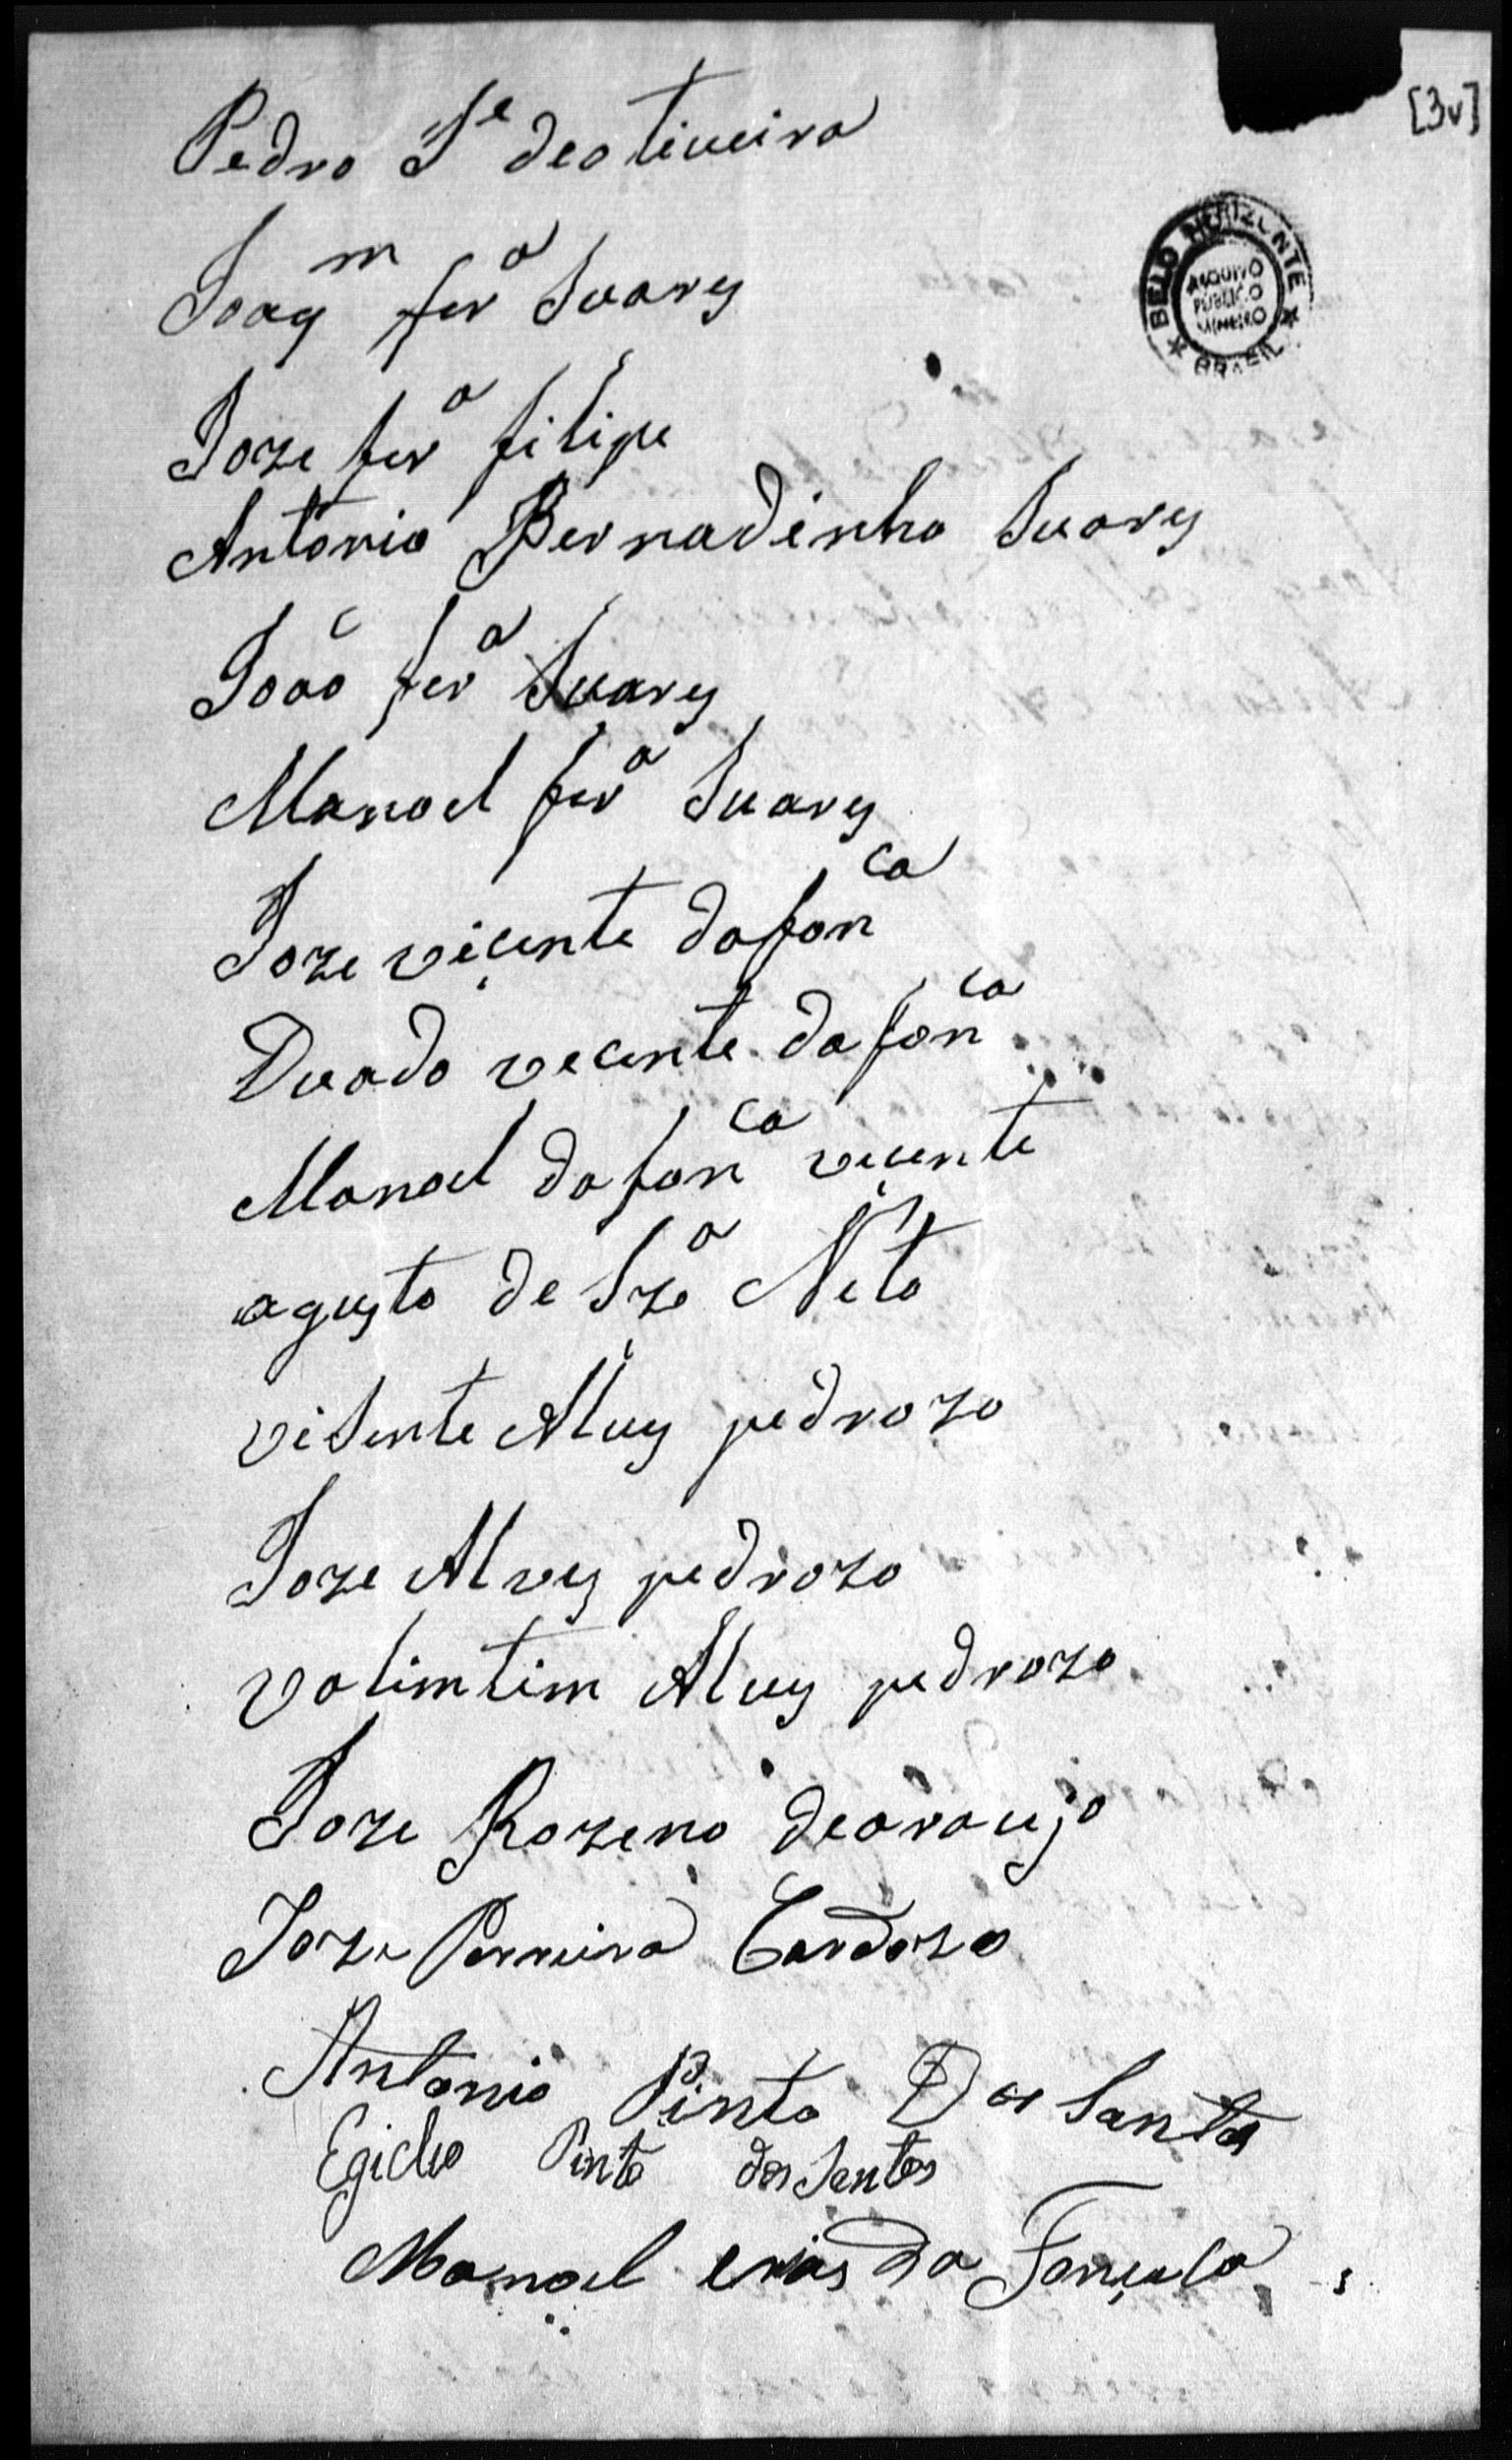 [3v]
BELO HORIZONTE
ARQUIVO
PUBLICO
MINEIRO
* BRASIL *
Pedro Je deoliveira
Joaqm ferª Suares
Joze ferª filipe
Antonio Bernadinho Suares
João ferª Suares
Manoel ferª Suares
Joze vicente dafonca
vecente dafonca
Manoel dafonca vicente
agusto de Szª Neto
viSente Alves pedrozo
Joze Alves pedrozo
valimtim Alves pedrozo
Joze Rozeno dearaujo
Joze Perreira Cardozo
Antonio Pinto Dos Santos
Egidio Pinto dos Santos
Manoel da